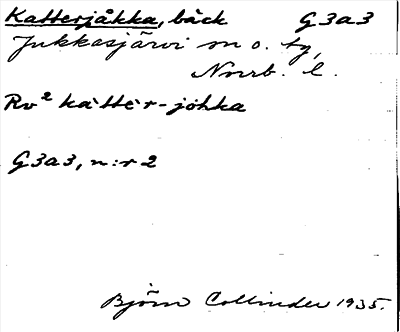 Katterjåkka, bäck G3a3
Jukkasjärvi sn o. tg,
Norrb. l.
Rv² ka'tte'r-johka
G3a3, n:r 2
Björn Collinder 1935.